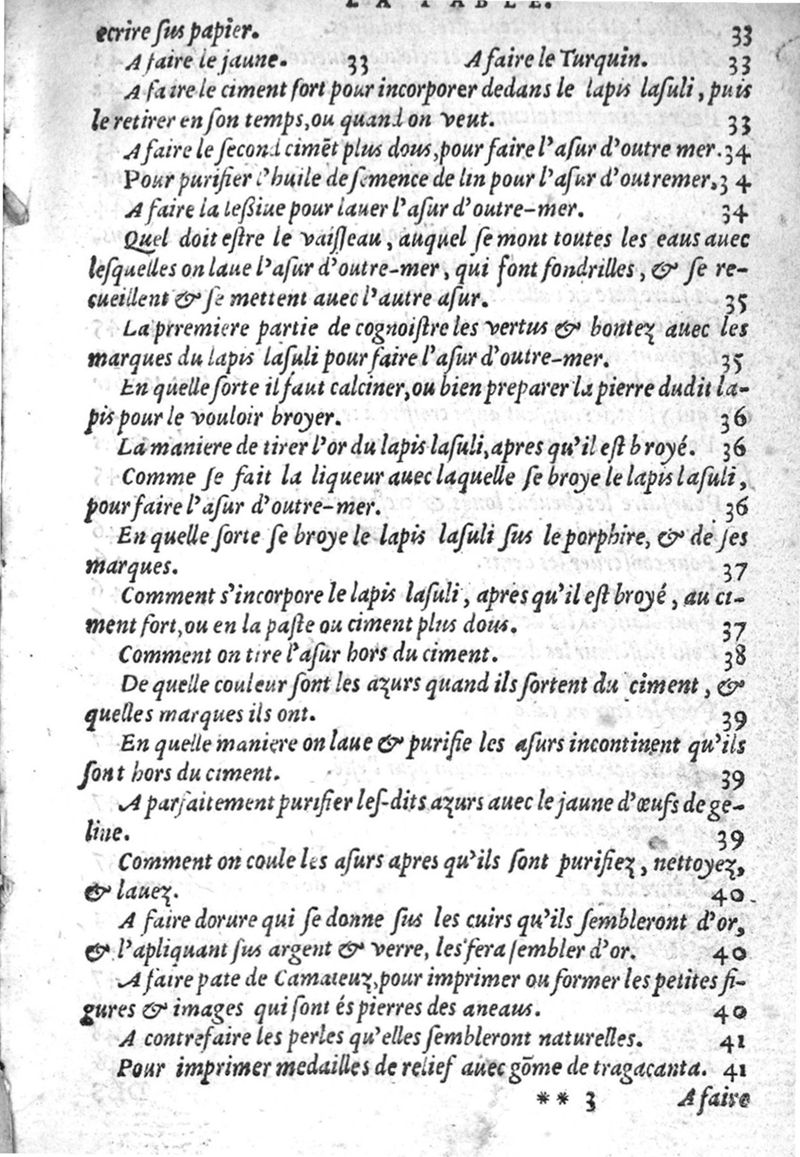 LA TABLE.
ecrire ſus papier. 33
A faire le jaune. 33 A faire le Turquin. 33
A faire le ciment fort pour incorporer dedans le lapis laſuli, puis
le retirer en ſon temps, ou quand on veut. 33
A faire le ſecond cimēt plus dous, pour faire l'aſur d'outre mer. 34
Pour purifier l'huile de ſemence de lin pour l'aſur d'outremer. 34
A faire la leßiue pour lauer l'aſur d'outre-mer. 34
Quel doit eſtre le vaiſſeau, auquel ſe mont toutes les eaus auec
leſquelles on laue l'aſur d'outre-mer, qui ſont fondrilles, & ſe re-
cueillent & ſe mettent auec l'autre aſur. 35
La prremiere partie de cognoiſtre les vertus & bontez auec les
marques du lapis laſuli pour faire l'aſur d'outre-mer. 35
En quelle ſorte il faut calciner, ou bien preparer la pierre dudit la-
pis pour le vouloir broyer. 36
La maniere de tirer l'or du lapis laſuli, apres qu'il eſt broyé. 36
Comme ſe fait la liqueur auec laquelle ſe broye le lapis laſuli,
pour faire l'aſur d'outre-mer. 36
En quelle ſorte ſe broye le lapis laſuli ſus le porphire, & de ſes
marques. 37
Comment s'incorpore le lapis laſuli, apres qu'il eſt broyé, au ci-
ment fort, ou en la paſte ou ciment plus dous. 37
Comment on tire l'aſur hors du ciment. 38
De quelle couleur ſont les azurs quand ils ſortent du ciment, &
quelles marques ils ont. 39
En quelle maniere on laue & purifie les aſurs incontinent qu'ils
ſont hors du ciment. 39
A parfaitement purifier leſ-dits azurs auec le jaune d'œufs de ge-
line. 39
Comment on coule les aſurs apres qu'ils ſont purifiez, nettoyez,
& lauez. 40
A faire dorure qui ſe donne ſus les cuirs qu'ils ſembleront d'or,
& l'apliquant ſus argent & verre, les fera ſembler d'or. 40
A faire pate de Camateuz, pour imprimer ou former les petites fi-
gures & images qui ſont és pierres des aneaus. 40
A contrefaire les perles qu'elles ſembleront naturelles. 41
Pour imprimer medailles de relief auec gōme de tragacanta. 41
** 3 A faire